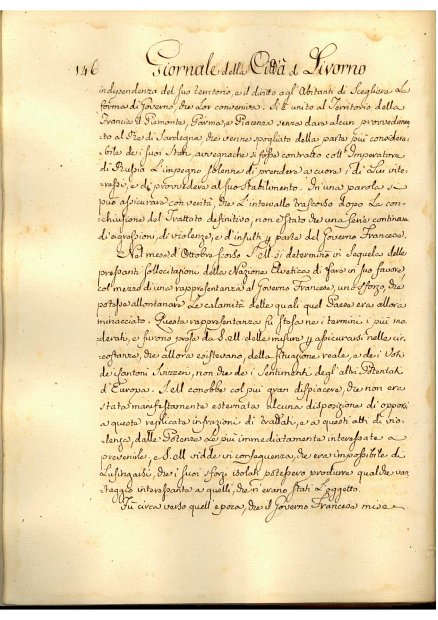 146 Giornale della Città di Livorno
independenza del suo territorio, e il diritto agl'Abitanti di Scegliere la
forma di Governo, che lor conveniva. Si è unito al Territorio della
Francia il Piemonte, Parma, e Piacenza senza dare alcun provvedimento
to al Rè di Sardegna, che venne spogliato della parte più considera-
bile de i suoi Stati, avvegnache si fosse contratto coll'Imperatore
di Russia l'impegno solenne di prendere a cuore i di Lui inte-
ressi, e di provvedere al suo stabilimento. In una parola si
può assicurare con verità, che l'intervallo trascorso dopo la con-
chiusione del Trattato definitivo, non è stato che una serie continua
di aggressioni, di violenze, e d'insulti per parte del Governo Francese.
Nel mese d'Ottobre scorso S. M. si determinò in sequela delle
pressanti sollecitazioni della Nazione Elvetica di fare in suo favore
col mezzo di una rappresentanza al Governo Francese, uno sforzo, che
potesse allontanare le calamità delle quali quel Paese era allora
minacciato. Questa rappresentanza fu stesa ne i termini i più mo-
derati, e furono prese da S. M. delle misure per assicurarsi nelle cir-
costanze, che allora esistevano, della situazione reale, e de i Voti
dei Cantoni Svizzeri, non che de i sentimenti degl'altri Potentati
d'Europa. S. M. conobbe col più gran dispiacere, che non era
stata manifestamente esternata alcuna disposizione di opporsi
a queste replicate infrazioni di trattati, e a questi atti di vio-
lenza, dalle Potenze le più immediatamente interessate a
prevenirle, e S. M. vidde in conseguenza, che era impossibile di
Lusingarsi, che i suoi sforzi isolati potessero produrre qualche van-
taggio interessante a quelli, che n'erano stati l'oggetto.
Fù circa verso quell'epoca, che il Governo Francese mise